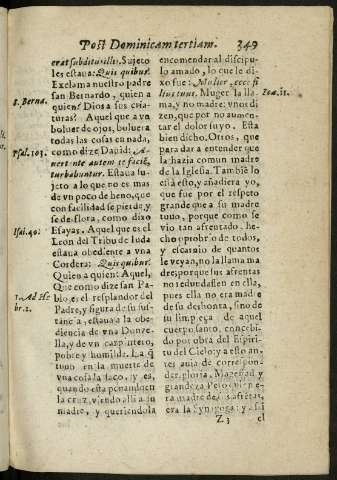 Post Dominicam tertiam. 349
erat subditus illis. Sujeto
les estaua: Quis quibus?
Exclama nuestro padre
S. Berna.
san Bernardo, quien a
quien? Dios a sus cria-
turas? Aquel que a vn
boluer de ojos, boluera
todas las cosas en nada,
Psal. 103.
como dize Dauid: A-
uertente autem te faciẽ,
turbabuntur. Estaua su-
jeto a lo que no es mas
de vn poco de heno, que
con facilidad se pierde, y
se desflora, como dixo
Isai. 40.
Esayas. Aquel que es el
Leon del Tribu de Iuda
estaua obediente a vna
Cordera: Quis quibus?
Quien a quien: Aquel,
Que como dize san Pa-
1. Ad He
br. 2.
blo, es el resplandor del
Padre, y figura de su sus-
tancia, estaua a la obe-
diencia de vna Donze-
lla, y de vn carpintero,
pobre y humilde. La q̃
tuuo en la muerte de
vna cosa la saco, y es,
quando esta penando en
la cruz, viendo alli a su
madre, y queriendola
encomendar al discipu-
lo amado, lo que le di-
Ioã. 11.
xo fue: Mulier, ecce fi-
lius tuus. Muger la lla-
ma, y no madre: vnos di
zen, que por no aumen-
tar el dolor suyo. Esta
bien dicho. Otros, que
para dar a entender que
la hazia comun madre
de la Iglesia. Tambiẽ lo
está esto, y añadiera yo,
que fue por el respeto
grande que a su madre
tuuo, porque como se
vio tan afrentado, he-
cho oprobrio de todos,
y escarnio de quantos
le veyan, no la llama ma
dre; porque sus afrentas
no redundassen en ella,
pues ella no era madre
de su deshonra, sino de
su limpieça de aquel
cuerpo santo, concebi-
do por obra del Espiri-
tu del Cielo: y a esto an-
tes auia de correspon-
der gloria, Magestad y
grandeza. Pero quien e-
ra madre de sus afrétas,
era la Synagoga: y assi
Z 3 el